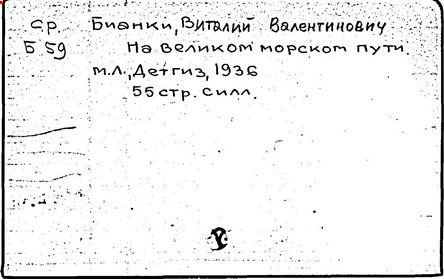 ср. Бианки, Виталий Валентинович
Б 59 На великом морском пути.
м.Л., Детгиз, 1936
55 стр. с илл.